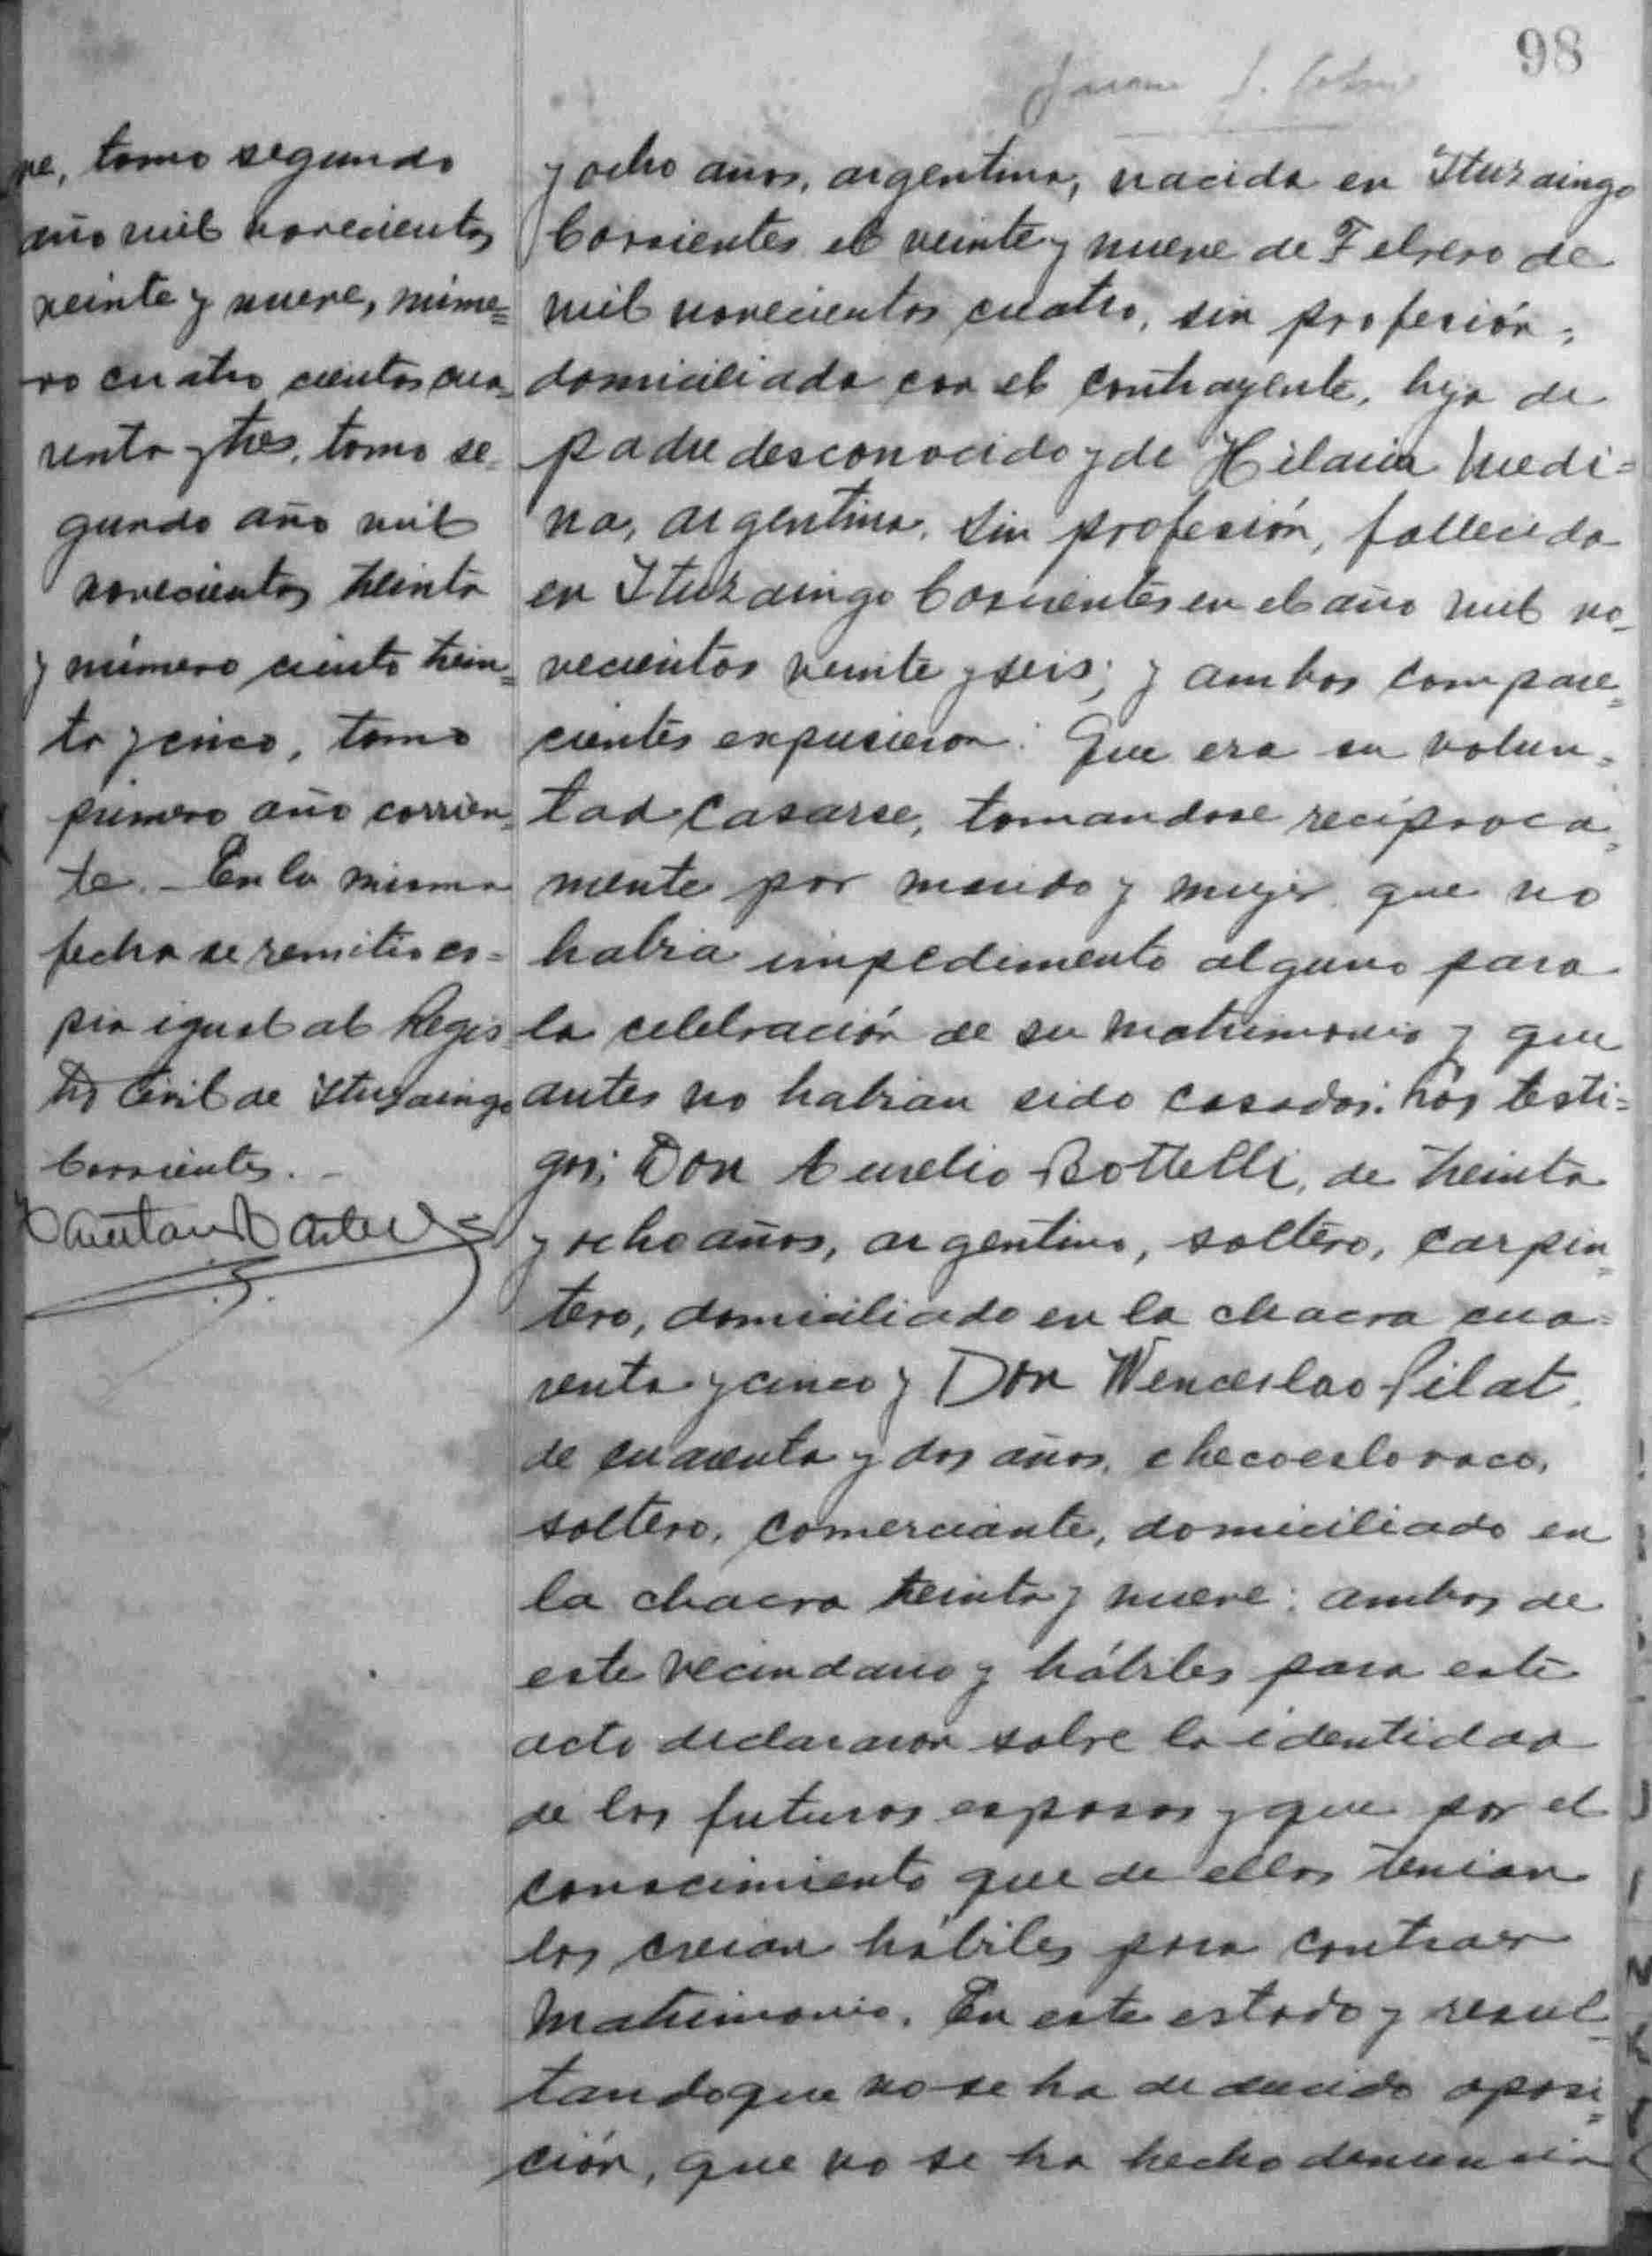 98
ve, tomo segundo
año mil novecientos
veinte y nueve, núme=
ro cuatro cientos cua=
renta y tres, tomo se=
gundo año mil
novecientos treinta
y número ciento trein=
ta y cinco, tomo
primero año corrien=
te. - En la misma
fecha se remitio co=
pia igual al Regis=
tro Civil de Ituzaingo
Corrientes. -
y ocho años, argentina, nacida en Ituzaingo
Corrientes el veinte y nueve de Febrero de
mil novecientos cuatro, sin profesión,
domiciliada con el contrayente, hija de
padre desconocido y de Hilaria Medi=
na, argentina, sin profesión, fallecida
en Ituzaingo Corrientes en el año mil no=
vecientos veinte y seis; y ambos compare=
cientes expusieron: Que era su volun=
tad casarse, tomandose reciproca=
mente por marido y mujer que no
habia impedimento alguno para
la celebración de su matrimonio y que
antes no habian sido casados. Los testi=
gos: Don Aurelio Bottelli, de treinta
y ocho años, argentino, soltero, carpin=
tero, domiciliado en la chacra cua=
renta y cinco y Don Wenceslao Pilat,
de cuarenta y dos años, checoeslovaco,
soltero, comerciante, domiciliado en
la chacra treinta y nueve: ambos de
este vecindario y hábiles para este
acto declararon sobre la identidad
de los futuros esposos y que por el
conocimiento que de ellos tenian
los creian hábiles para contraer
matrimonio. En este estado y resul=
tando que no se ha deducido oposi=
ción, que no se ha hecho denuncia